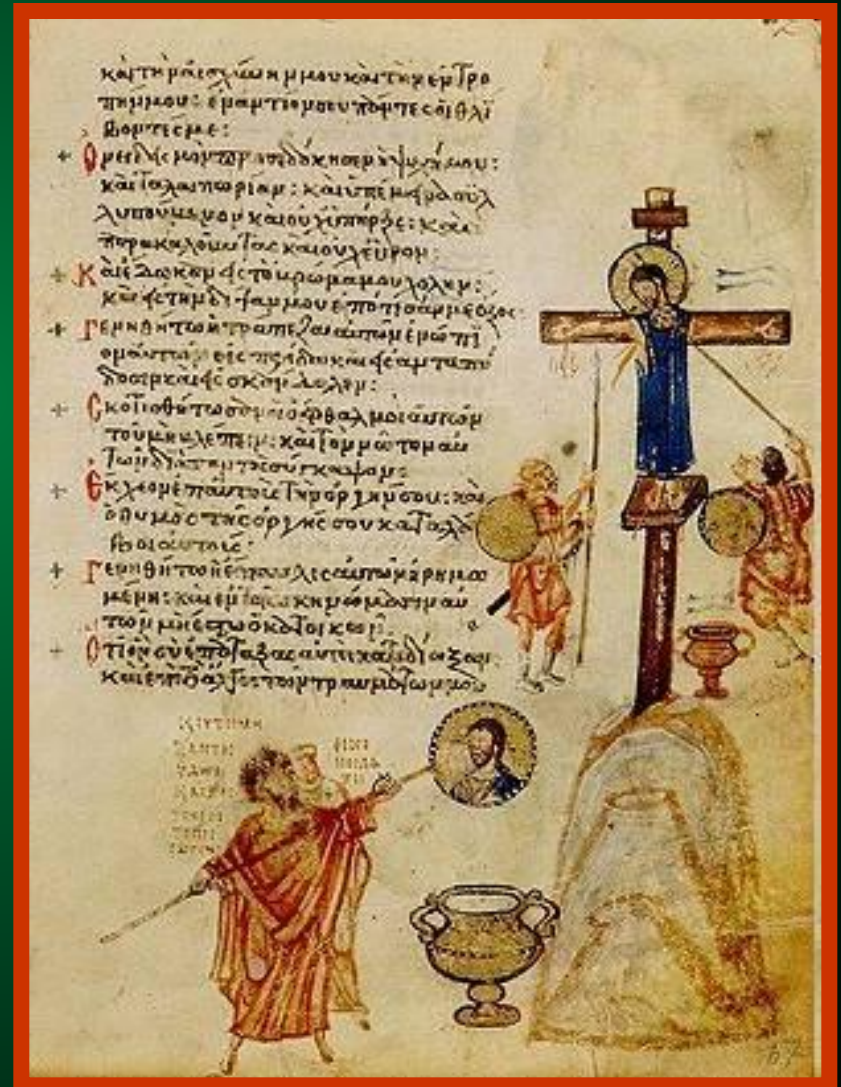 καὶ τὴν αἰσχύνην μου καὶ τὴν ἐντρο
πήν μου: ἐναντίον σου πάντες οἱ θλί
βοντές με:
Ὀνειδισμὸν προσεδόκησεν ἡ ψυχή μου:
καὶ ταλαιπωρίαν: καὶ ὑπέμεινα συλ
λυπούμενον καὶ οὐχ ὑπῆρξε: καὶ
παρακαλοῦντας καὶ οὐχ εὗρον:
Καὶ ἔδωκαν εἰς τὸ βρῶμα μου χολήν:
καὶ εἰς τὴν δίψαν μου ἐπότισάν με ὄξος:
Γενηθήτω ἡ τράπεζα αὐτῶν ἐνώπι
ον αὐτῶν εἰς παγίδα καὶ εἰς ἀνταπό
δοσιν καὶ εἰς σκάνδαλον:
Σκοτισθήτωσαν οἱ ὀφθαλμοὶ αὐτῶν
τοῦ μὴ βλέπειν: καὶ τὸν νῶτον αὐ
τῶν διὰ παντὸς σύγκαμψον:
Ἔκχεον ἐπ αὐτοὺς τὴν ὀργήν σου: καὶ
ὁ θυμὸς τῆς ὀργῆς σου καταλά
βοι αὐτούς:
Γενηθήτω ἡ ἔπαυλις αὐτῶν ἠρημω
μένη: καὶ ἐν τοῖς σκηνώμασιν αὐ
τῶν μὴ ἔστω ὁ κατοικῶν:
Ὅτι ὃν σὺ ἐπάταξας αὐτοὶ κατεδίωξαν:
καὶ ἐπὶ τὸ ἄλγος τῶν τραυμάτων μου
67